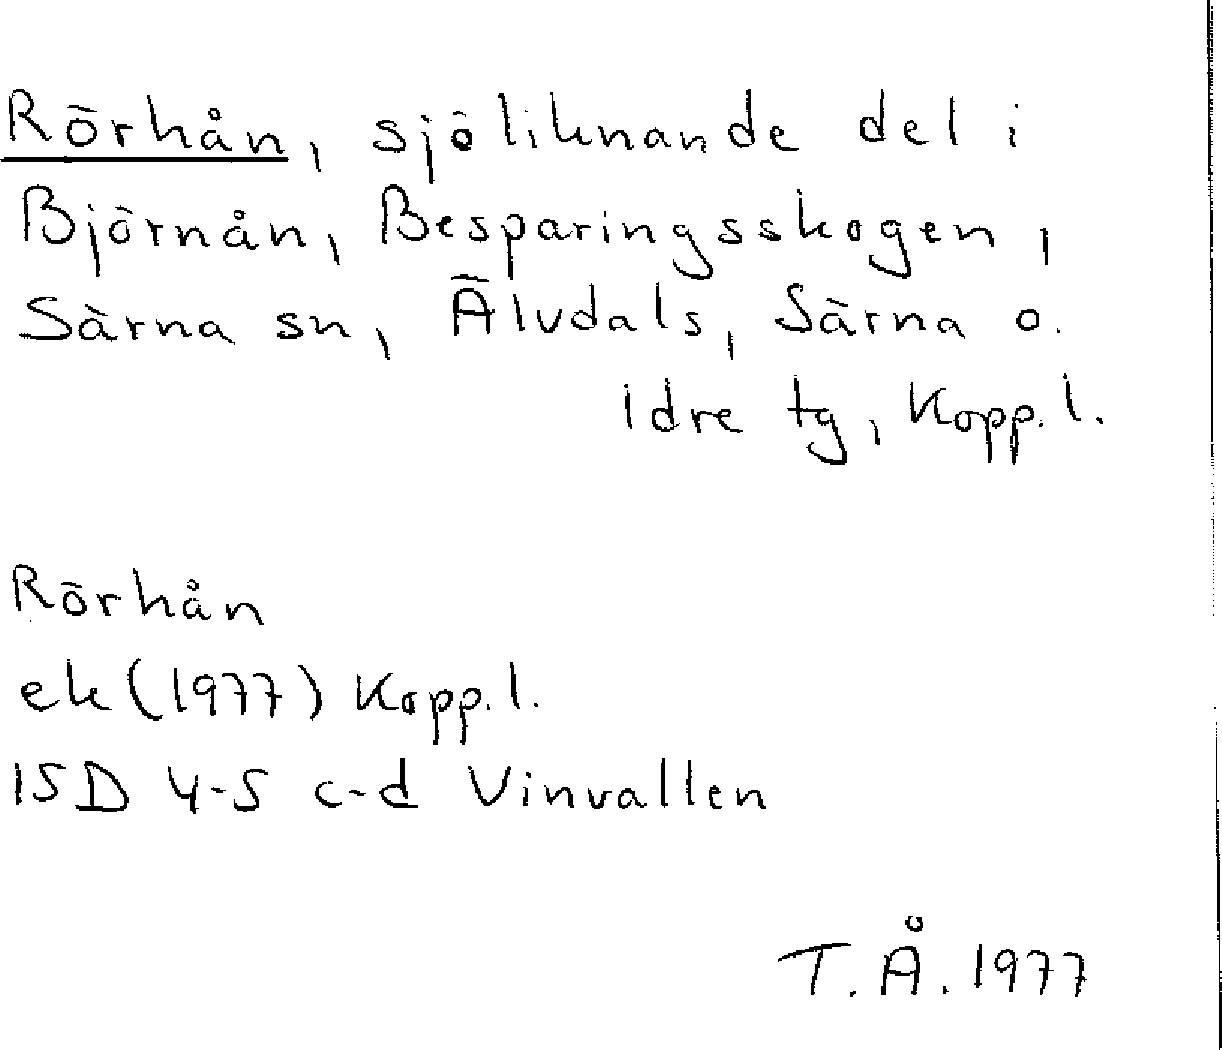 Rörhån, sjöliknande del i
Björnån, Besparingsskogen,
Särna sn, Älvdals, Särna o.
Idre tg, Kopp. l.
Rörhån
ek (1977) Kopp. l.
15D 4-5 c-d Vinvallen
T. Å. 1977